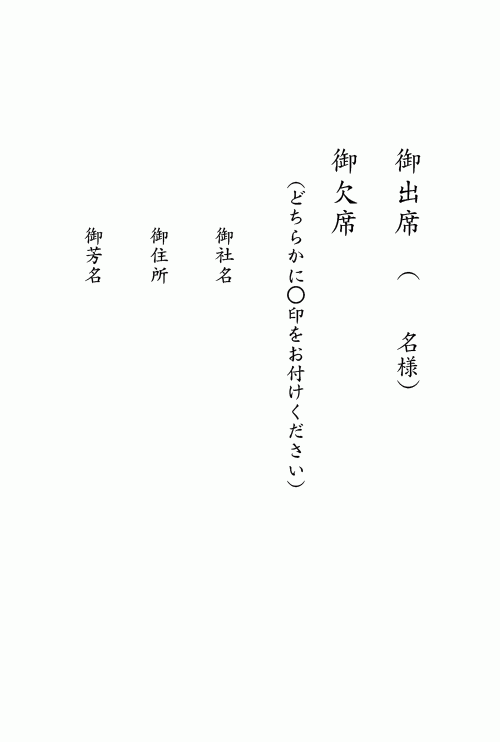 御出席 （ 名様）
御欠席
（どちらかに〇印をお付けください）
御社名
御住所
御芳名